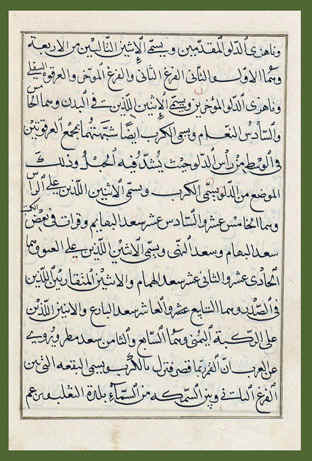 وناهزى الدلو المقدمين ويسمى الاثنين التاليين من الاربعة
وهما الاول والثانى الفرغ الثانى والفرغ المؤخر والعرقوة السفلى
وناهزى الدلو المؤخرين ويسمى الاثنين اللذين فى البدن وهما الخامس
والسادس النعام ويسمى الكرب ايضا شبهتهما بمجمع العرقوتين
فى الوسط من رأس الدلو حيث يشد فيه الحبل وذلك
الموضع من الدلو يسمى الكرب ويسمى الاثنين اللذين على الراس
وهما الخامس عشر والسادس عشر سعد البهايم وقرات فى بعض الكتب
سعد البهام وسعد النهى ويسمى الاثنين اللذين على العنق وهما
الحادى عشر والثانى عشر سعد الهمام والاثنين المتقاربين اللذين
فى الصدر وهما التاسع عشر والعاشر سعد البارع والاثنين اللذين
على الركبة اليمنى وهما السابع والثامن سعد مطر ويروى
عن العرب ان القمر ربما قصر فنزل بالكرب ويسمى البقعة التى بين
الفرغ الثانى وبين السمكة من السماء بلدة الثعلب وزعم